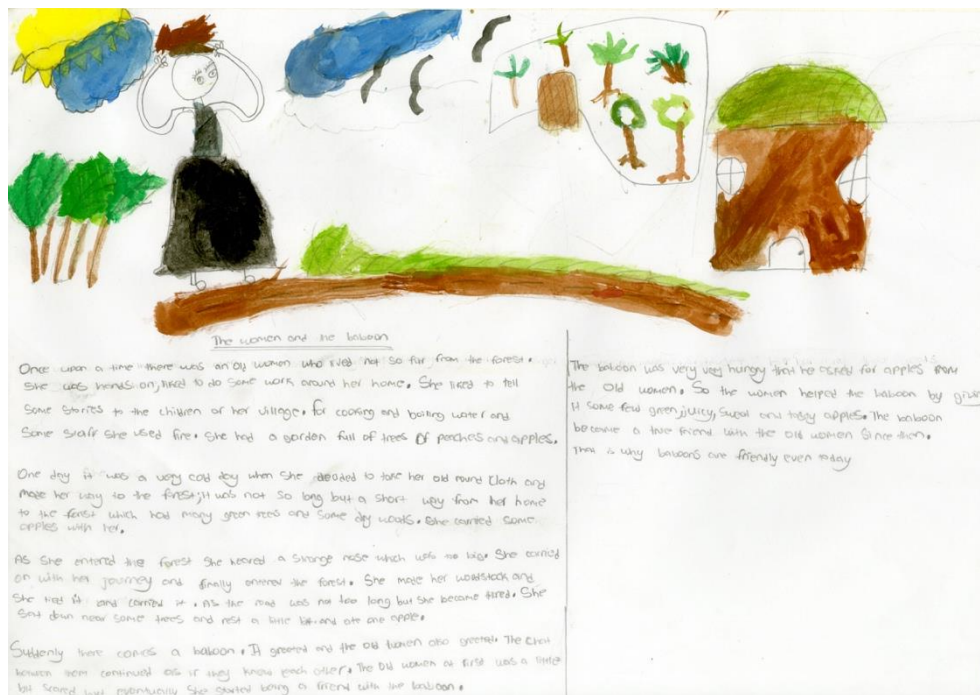 The women and the baboon
Once upon a time there was an old women who lived not so far from the forest.
She was hands on, liked to do some work around her home. She liked to tell
some stories to the children of her village. for cooking and boiling water and
some staff she used fire. She had a garden full of trees of peaches and apples.
One day it was a very cold day when she decided to take her old round cloth and
made her way to the forest; it was not so long but a short way from her home
to the forest which had many green trees and some dry woods. She carried some
apples with her.
As she entered the forest she heared a strange nose which was too big. She carried
on with her journey and finally entered the forest. She made her woodstack and
she tied it and carried it. As the road was not too long but she became tired. She
sat down near some trees and rest a little bit and ate one apple.
Suddenly there comes a baboon. It greeted and the old women also greeted. The chat
between them continued as if they know each other. The old women at first was a little
bit scared but eventually she started being a friend with the baboon.
The baboon was very very hungry that he asked for apples from
the old women. So the women helped the baboon by giving
it some few green, juicy, sweat and tasty apples. The baboon
became a true friend with the old women since then.
That is why baboons are friendly even today